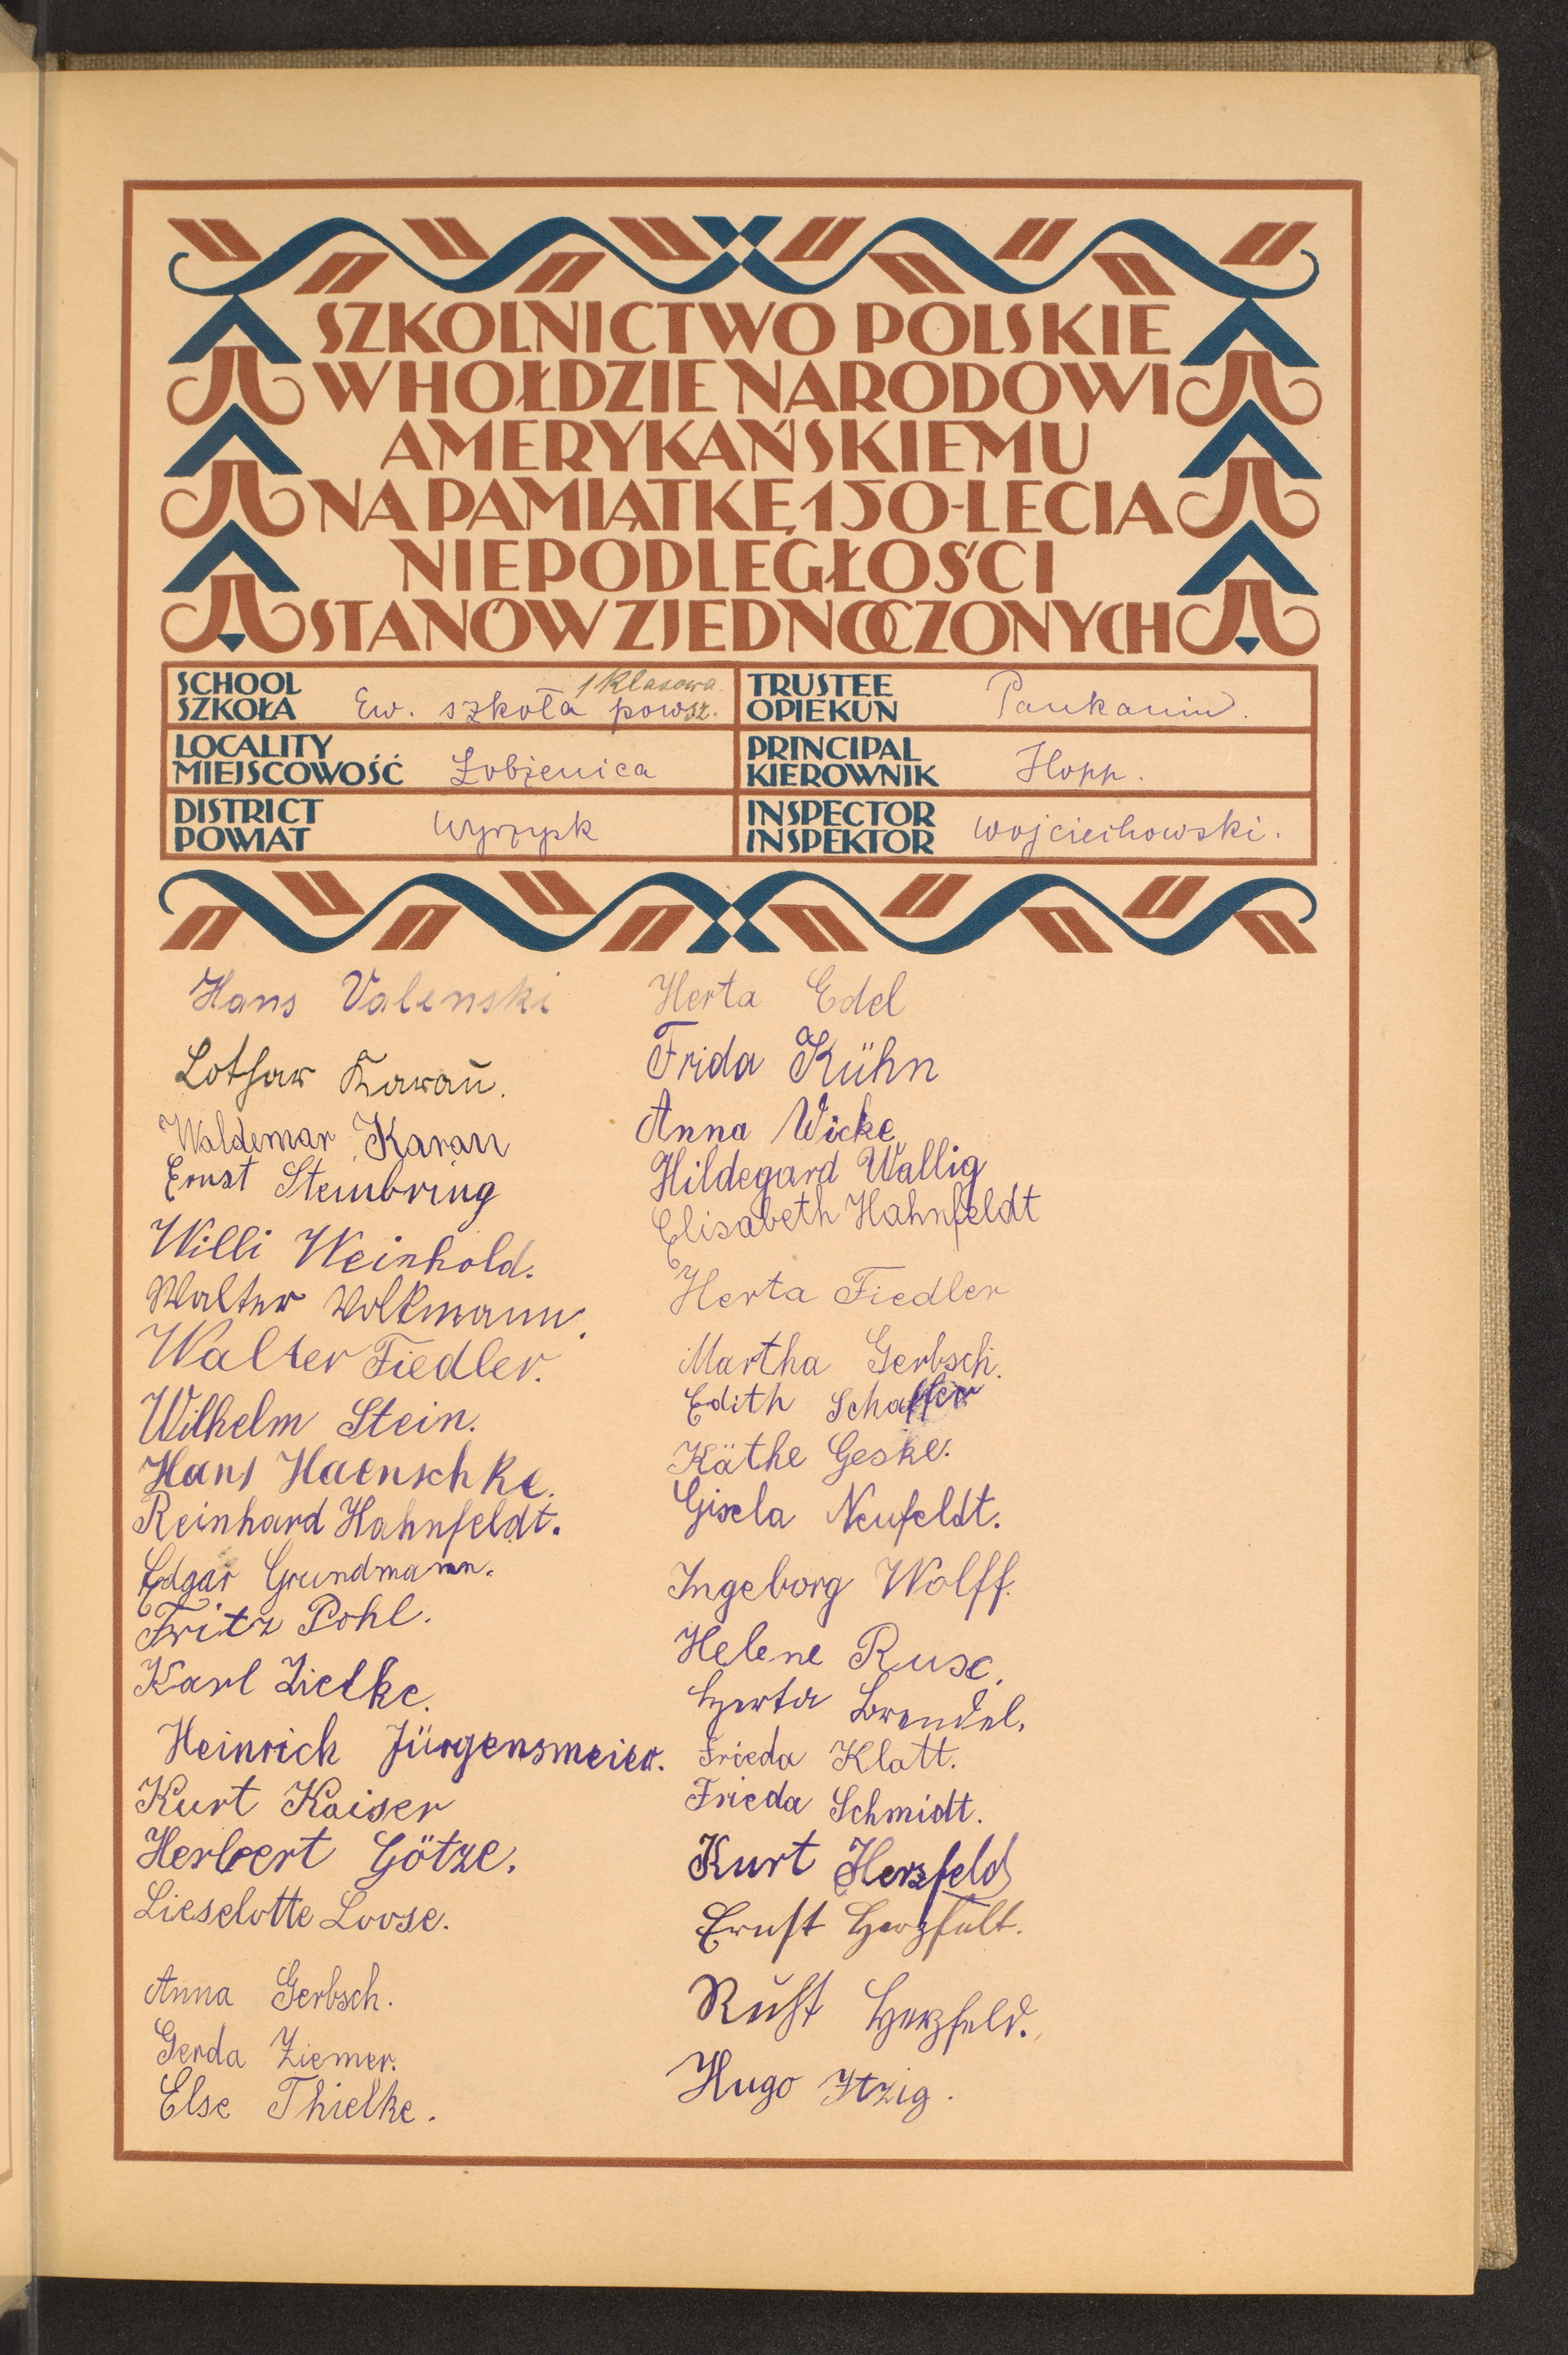 SZKOLNICTWO POLSKIE
W HOŁDZIE NARODOWI
AMERYKAŃSKIEMU
NA PAMIĄTKĘ 150-LECIA
NIEPODLEGŁOŚCI
STANÓW ZJEDNOCZONYCH
SCHOOL
SZKOŁA
1 klasowa
Ew. szkoła powsz.
TRUSTEE
OPIEKUN
Pankanin.
LOCALITY
MIEJSCOWOŚĆ
Łobżenica
PRINCIPAL
KIEROWNIK
Hopp.
DISTRICT
POWIAT
Wyrzysk
INSPECTOR
INSPEKTOR
Wojciechowski.
Hans Valenski
Lothar Karau.
Waldemar Karau
Ernst Steinbring
Willi Weinhold.
Walter Volkmann.
Walter Fiedler.
Wilhelm Stein.
Hans Haenschke.
Reinhard Hahnfeldt.
Edgar Grundmann.
Fritz Pohl.
Karl Zielke.
Heinrich Jürgensmeier.
Kurt Kaiser
Herbert Götze.
Lieselotte Loose.
Anna Gerbsch.
Gerda Ziemer.
Else Thielke.
Herta Edel
Frida Kühn
Anna Wicke
Hildegard Wallig
Elisabeth Hahnfeldt
Herta Fiedler
Martha Gerbsch.
Edith Schaffer
Käthe Geske.
Gisela Neufeldt.
Ingeborg Wolff.
Helene Ruse.
Herta Brendel.
Frieda Klatt.
Frieda Schmidt.
Kurt Herzfeld
Ernst Herzfeld.
Ruth Herzfeld.
Hugo Itzig.